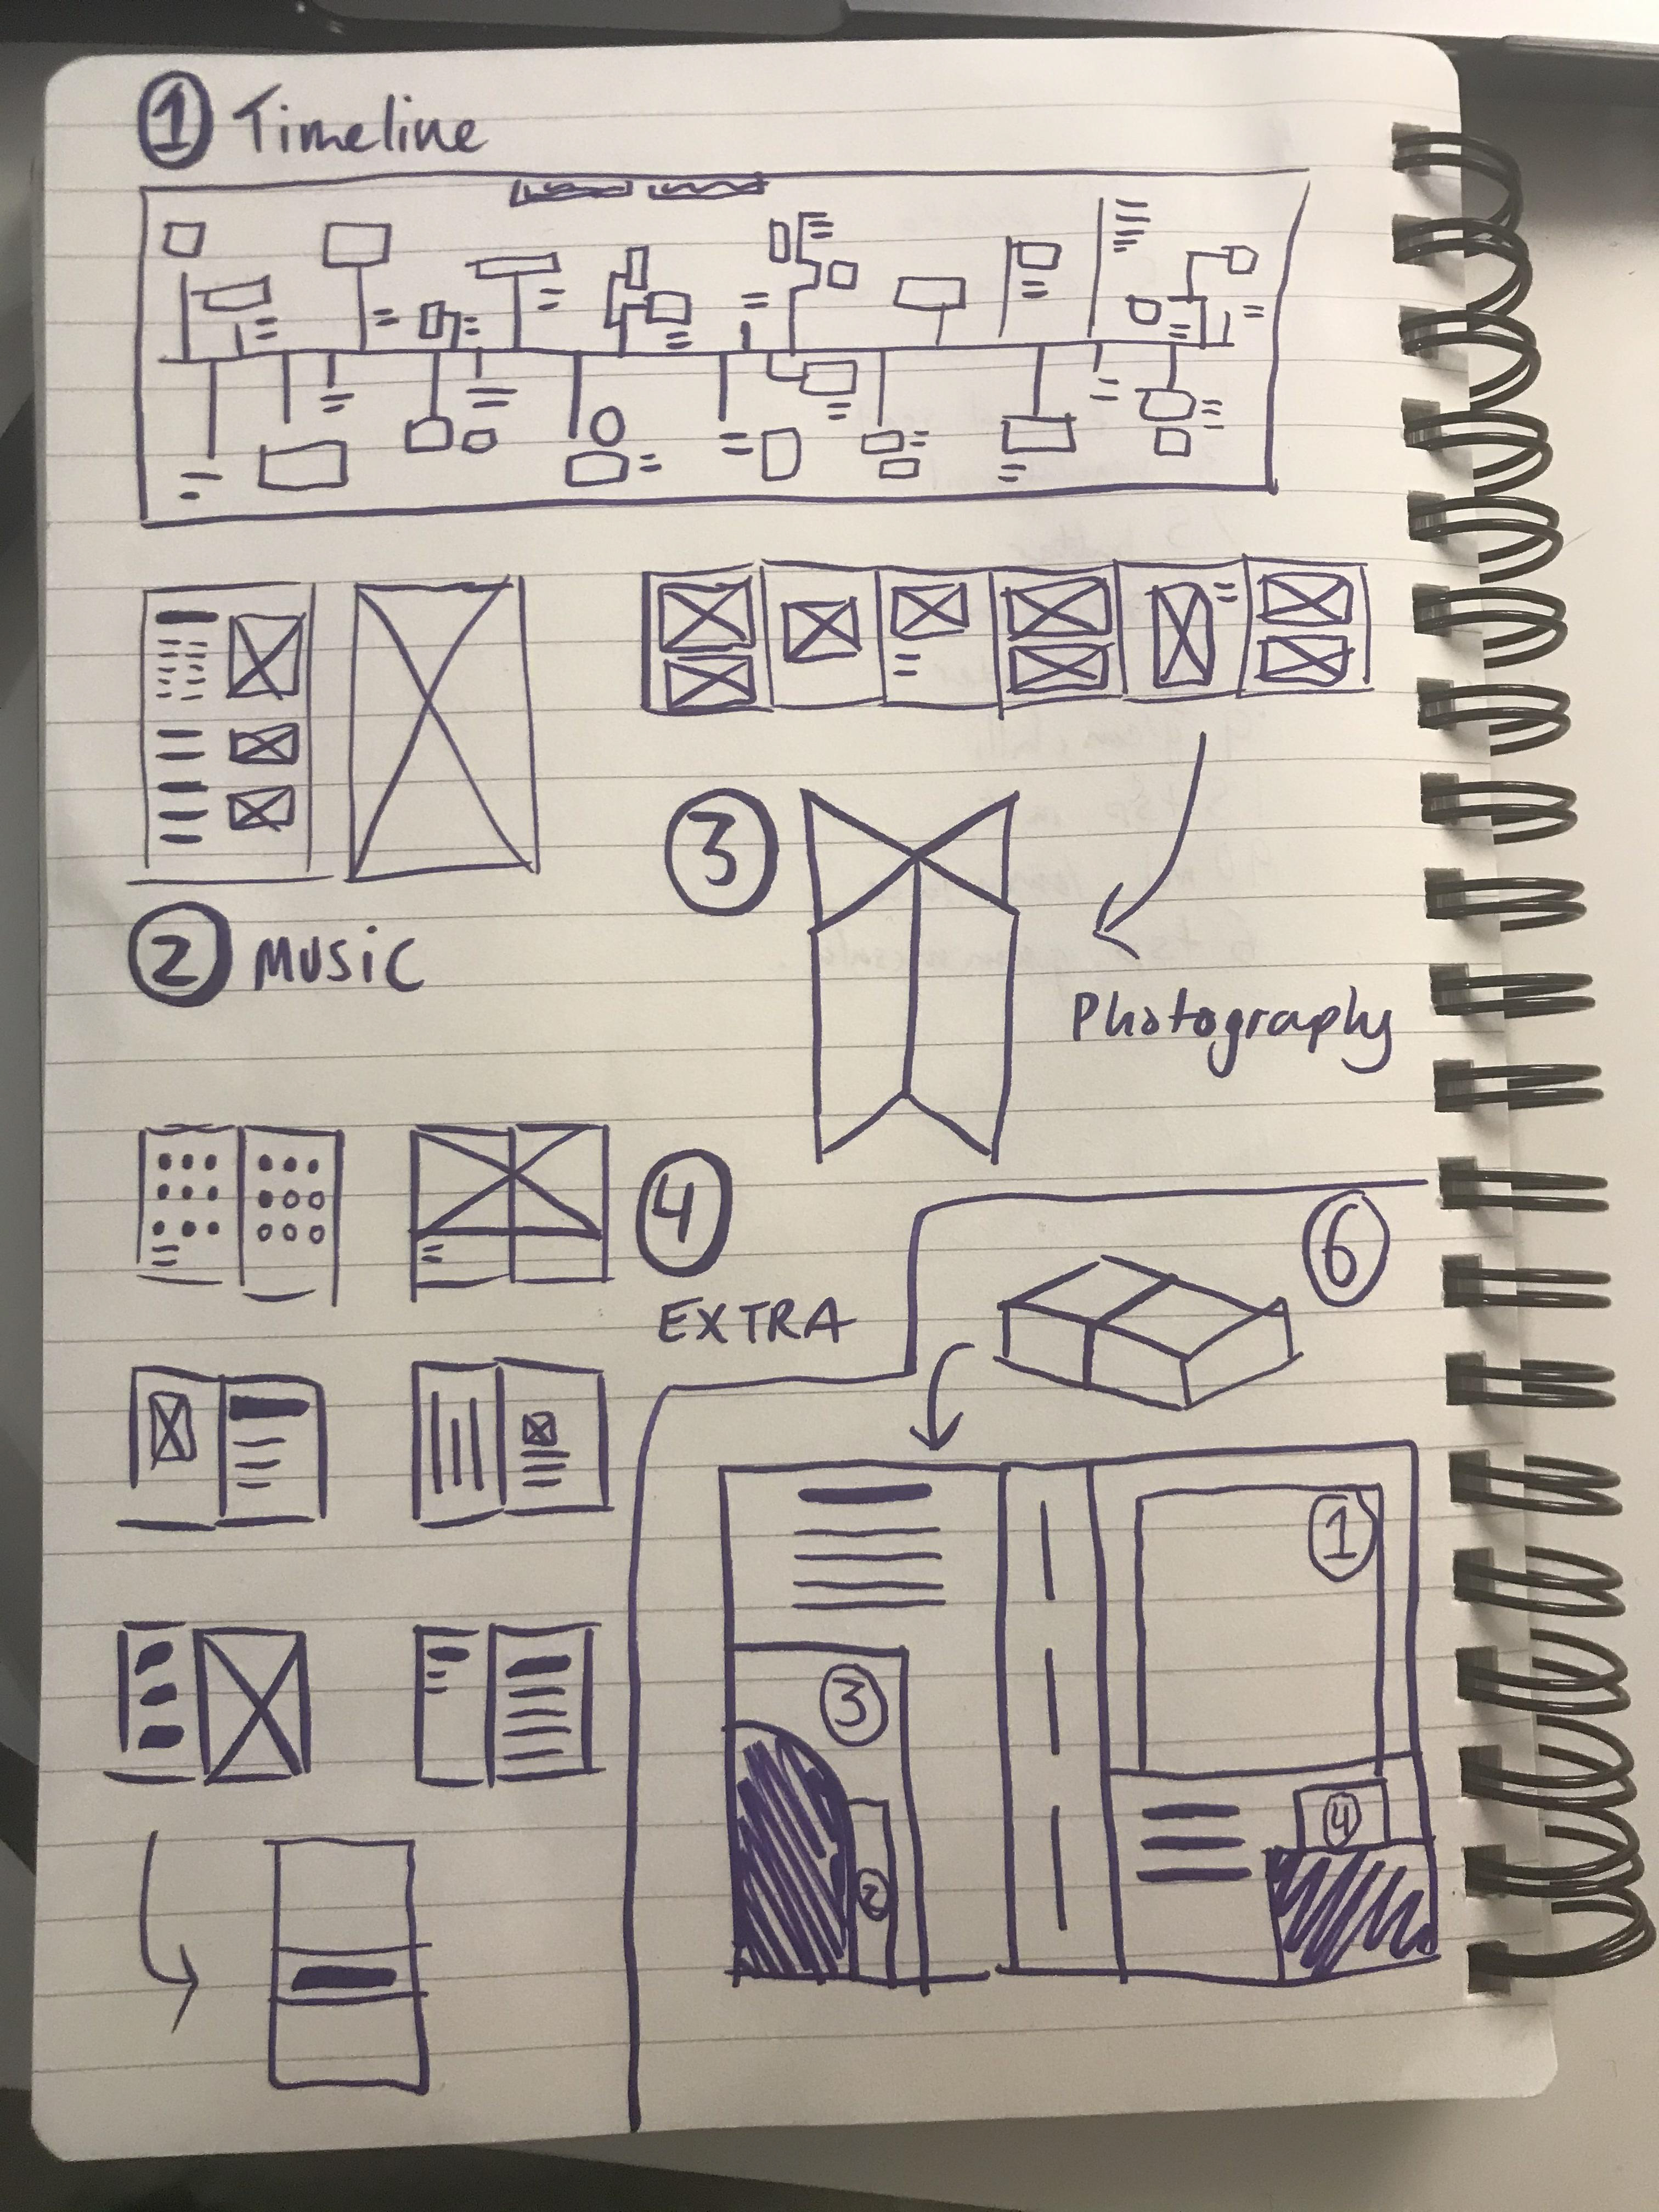 1 Timeline
3
2 MUSIC
Photography
4
EXTRA
6
1
3
4
2